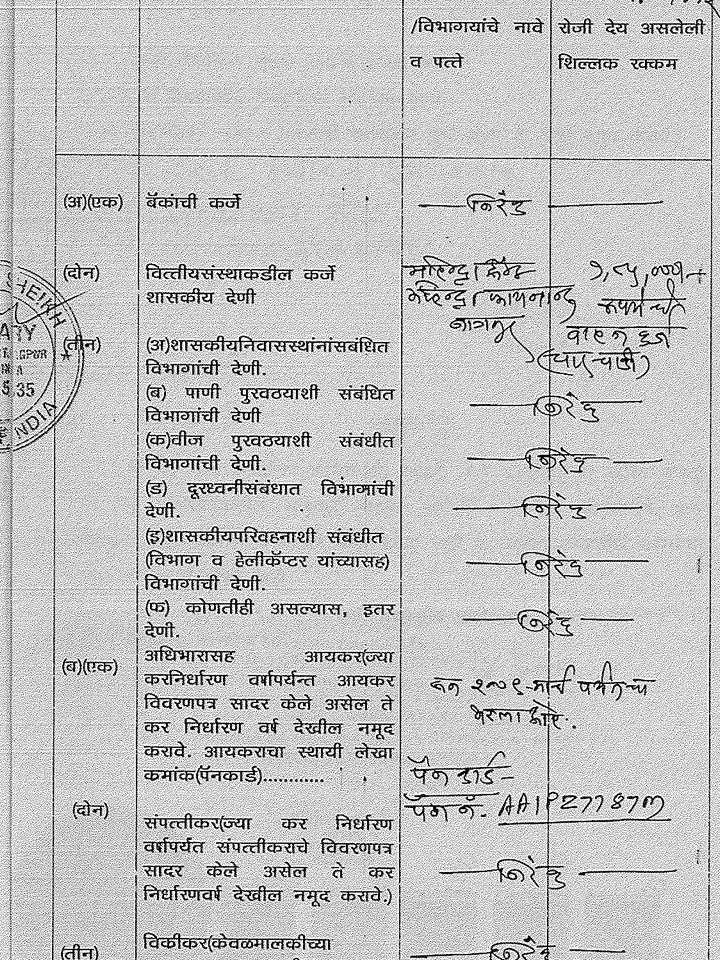 /विभागयांचे नावे
व पत्ते
रोजी देय असलेली
शिल्लक रक्कम
(अ)(एक)
बॅकांची कर्जे
निरंक
(दोन)
वित्तीयसंस्थाकडील कर्जे
शासकीय देणी
नागपूर
(तीन)
(अ)शासकीयनिवासस्थांनांसबंधित
विभागांची देणी.
(ब) पाणी पुरवठयाशी संबंधित
विभागांची देणी
निरंक
(क)वीज पुरवठयाशी संबंधीत
विभागांची देणी.
निरंक
(ड) दूरध्वनीसंबंधात विभांगांची
देणी.
निरंक
(इ)शासकीयपरिवहनाशी संबंधीत
(विभाग व हेलीकॅप्टर यांच्यासह)
विभागांची देणी.
निरंक
(फ) कोणतीही असल्यास, इतर
देणी.
निरंक
(ब)(एक)
अधिभारासह आयकर(ज्या
करनिर्धारण वर्षापर्यन्त आयकर
विवरणपत्र सादर केले असेल ते
कर निर्धारण वर्ष देखील नमूद
करावे. आयकराचा स्थायी लेखा
कमांक(पॅनकार्ड)............
सन २००९-मार्च पर्यंतचा
भरला आहे.
पॅन कार्ड -
पॅन नं. AAIPZ7787M
(दोन)
संपत्तीकर(ज्या कर निर्धारण
वर्षापर्यंत संपत्तीकराचे विवरणपत्र
सादर केले असेल ते कर
निर्धारणवर्ष देखील नमूद करावे.)
निरंक
(तीन)
विकीकर(केवळमालकीच्या
निरंक
SHEIKH
INDIA